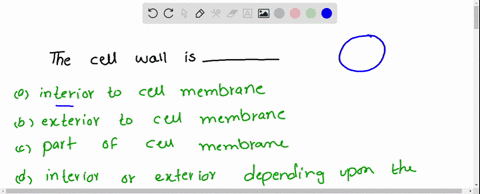 The cell wall is ________
(a) interior to cell membrane
(b) exterior to cell membrane
(c) part of cell membrane
(d) interior or exterior depending upon the